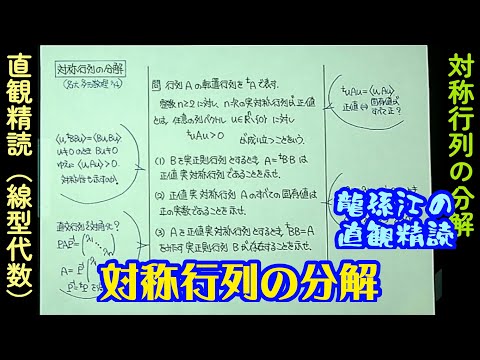 直観精読（線型代数）
対称行列の分解
対称行列の分解
問 行列 A の転置行列を ᵗA で表す.
整数 n≥2 に対し, n次の実対称行列が正値
とは, 任意の列ベクトル u∈ℝⁿ\{0} に対し
ᵗuAu > 0
が成り立つことをいう.
(1) B を実正則行列とするとき, A=ᵗBB は
正値実対称行列であることを示せ.
(2) 正値実対称行列 A のすべての固有値は
正の実数であることを示せ.
(3) A を正値実対称行列とするとき, ᵗBB=A
をみたす実正則行列 B が存在することを示せ.
ᵗuAu=⟨u,Au⟩
正値 ⇔ 固有値が
すべて正?
⟨u,ᵗBBu⟩=⟨Bu,Bu⟩
u≠0 のとき Bu≠0
ゆえに ⟨u,Au⟩>0.
対称性も示すのか.
直交行列を対角化?
龍孫江の
直観精読
対称行列の分解